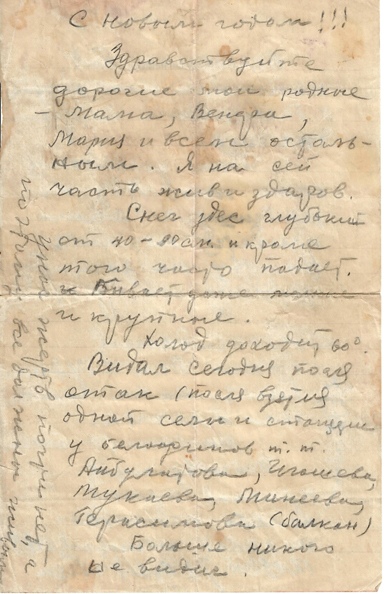 С новым годом!!!
Здравствуйте
дорогие мои родные
- Мама, Вендра,
Мария и всем осталь-
ным. Я на сей
часть жив и здоров.
Снег здес глубокий
от 40-90 см. и кроме
того часто падает.
и бывает даже
и крупные.
Холод доходит 60°.
Видал сегодня после
атак (после взятия
одной селы и станции
у белофинов т.т.
Айбулатова, Игошева,
Мукаева, Минеева,
Герасимова (балкан)
Больше никого
не видал.
у них жертв почти нет, а